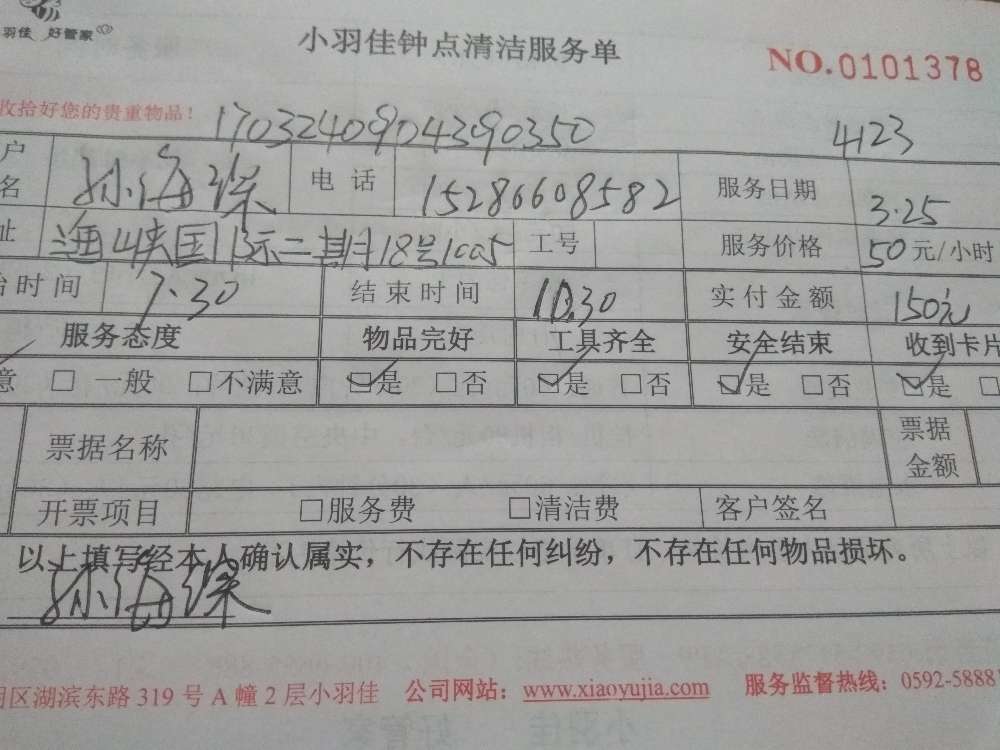 羽佳 好管家
小羽佳钟点清洁服务单
NO.0101378
收拾好您的贵重物品！
17032409043090350 4123
户名 孙海深 电话 15286608582 服务日期 3.25
址 海峡国际二期18号1005 工号 服务价格 50元/小时
时间 7.30 结束时间 10.30 实付金额 150元
服务态度 物品完好 工具齐全 安全结束 收到卡片
意 □一般 □不满意 ☑是 □否 ☑是 □否 ☑是 □否 ☑是 □
票据名称 票据金额
开票项目 □服务费 □清洁费 客户签名
以上填写经本人确认属实，不存在任何纠纷，不存在任何物品损坏。
孙海深
区湖滨东路 319 号 A 幢 2 层小羽佳 公司网站：www.xiaoyujia.com 服务监督热线：0592-5888